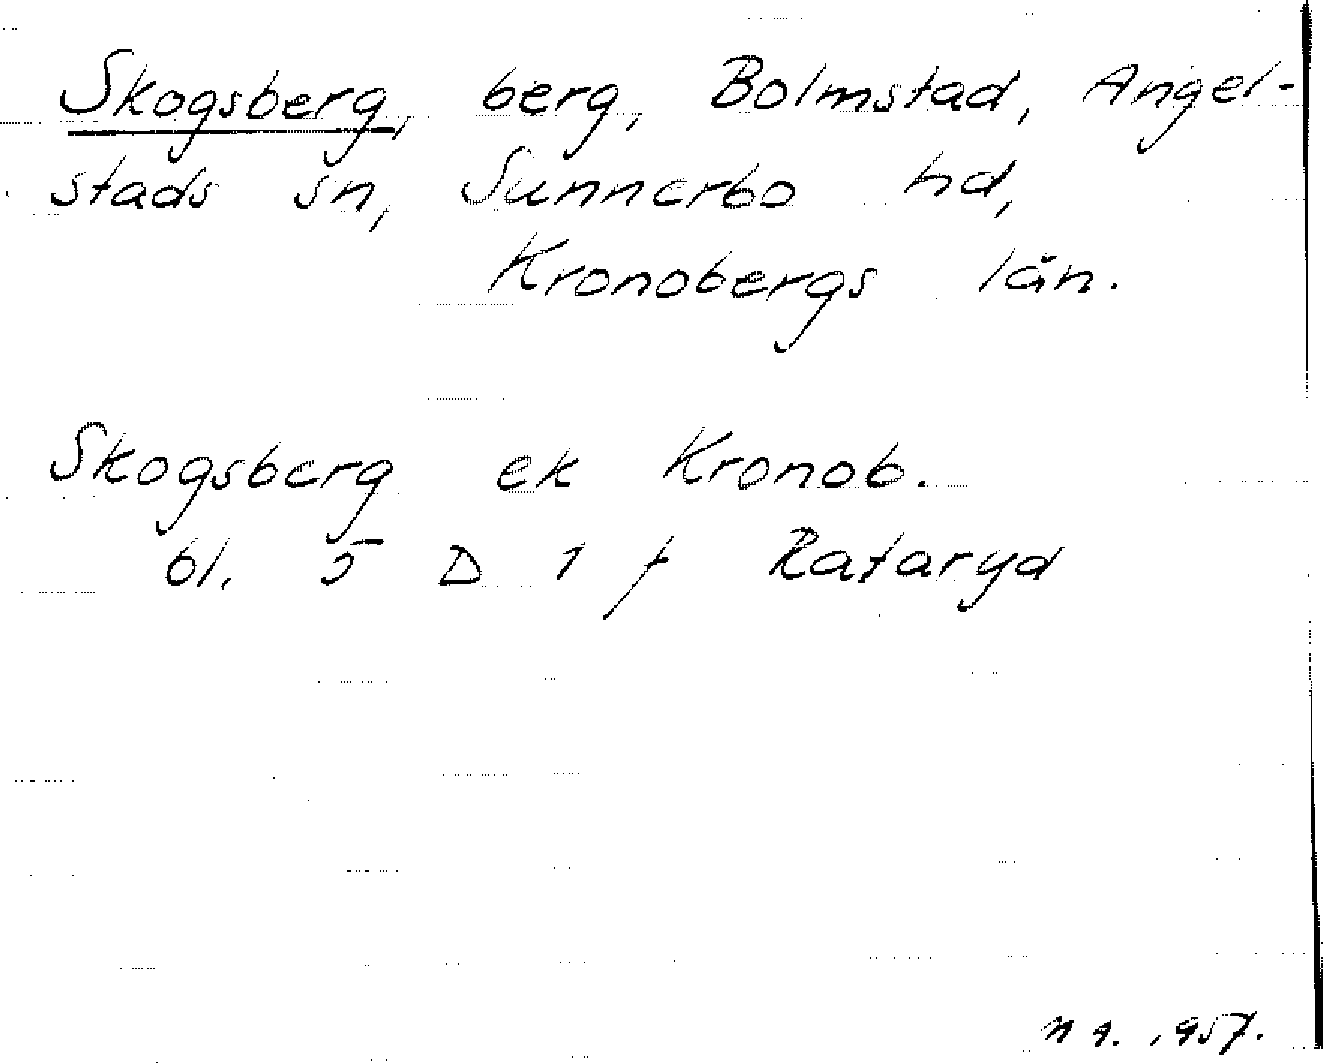 Skogsberg, berg, Bolmstad, Angel-
stads sn, Sunnerbo hd,
Kronobergs län.
Skogsberg ek Kronob.
bl. 5 D 1 f Rataryd
n 4. 1957.